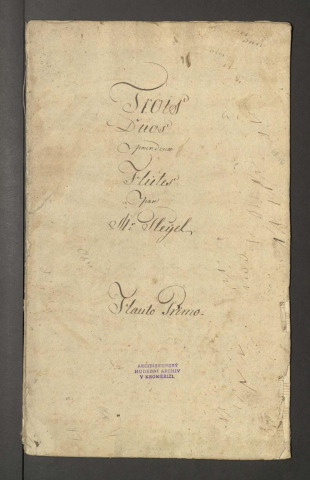 Trois
Duos
pour deux
Flûtes
par
Mr. Pleÿel
Flauto Primo.
ARCIBISKUPSKÝ
HUDEBNÍ ARCHIV
V KROMĚŘÍŽI.